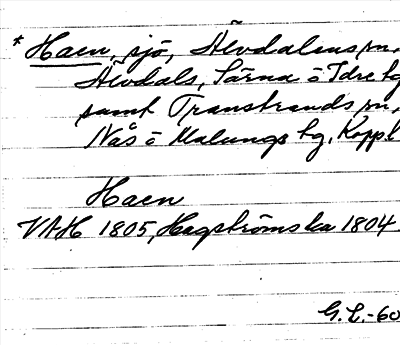 * Haen, sjö, Älvdalens sn,
Älvdals, Särna ö Idre tg
samt Transtrands sn,
Nås ö Malungs tg, Koppl
Haen
VAH 1805, Hagströmska 1804
G.L.-60